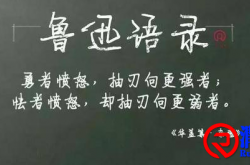 鲁迅语录
勇者愤怒，抽刃向更强者；
怯者愤怒，却抽刃向更弱者。